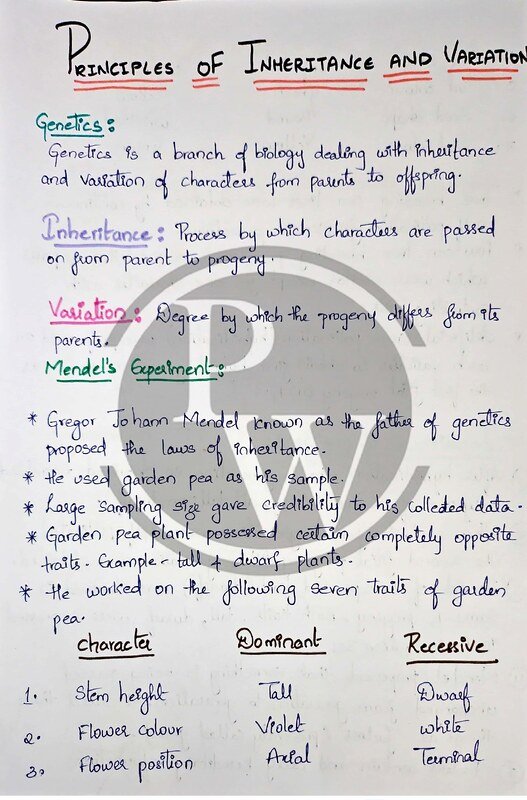 PRINCIPLES OF INHERITANCE AND VARIATION
Genetics:
Genetics is a branch of biology dealing with inheritance
and variation of characters from parents to offspring.
Inheritance: Process by which characters are passed
on from parent to progeny.
Variation: Degree by which the progeny differs from its
parents.
Mendel's Experiment:
* Gregor Johann Mendel known as the father of genetics
proposed the laws of inheritance.
* He used garden pea as his sample.
* Large sampling size gave credibility to his collected data.
* Garden pea plant possessed certain completely opposite
traits. Example - tall & dwarf plants.
* He worked on the following seven traits of garden
pea.
Character Dominant Recessive
1. Stem height Tall Dwarf
2. Flower colour Violet white
3. Flower position Axial Terminal
PW